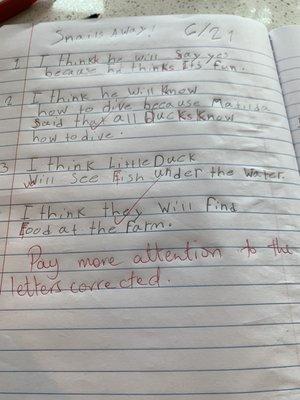 Snails Away! 6/21
1 I think he will say yes
because he thinks it's fun.
2 I think he will know
how to dive because Matilda
said that all Ducks know
how to dive.
3 I think Little Duck
will see fish under the water.
I think they will find
food at the farm.
Pay more attention to the
letters corrected.